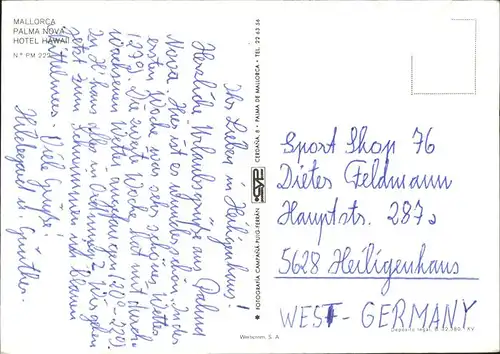 MALLORCA
PALMA NOVA
HOTEL HAWAII
N° PM 222
Ihr Lieben in Heiligenhaus!
Herzliche Urlaubsgrüße aus Palma
Nova. Hier ist es wunderschön. In der
ersten Woche war sehr schönes Wetter
(27°). Die zweite Woche hat mit durch-
wachsenem Wetter angefangen (20°-22°).
Zu Haus alles in Ordnung? Wir gehen
jetzt zum Schwimmen ins blaue
Mittelmeer. Viele Grüße!
Hildegard u. Günther
FOTOGRAFIA CAMPAÑÁ PUIG-FERRÁN
CERDAÑA, 8 - PALMA DE MALLORCA - TEL. 22 63 36
Sport Shop 76
Dieter Feldmann
Hauptstr. 287a
5628 Heiligenhaus
WEST-GERMANY
Deposito legal B. XV